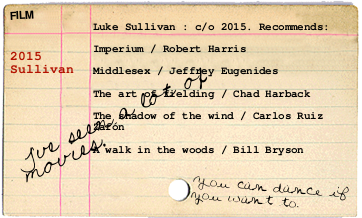 FILM
Luke Sullivan : c/o 2015. Recommends:
2015
Sullivan
Imperium / Robert Harris
Middlesex / Jeffrey Eugenides
The art of fielding / Chad Harback
The shadow of the wind / Carlos Ruiz
Zafón
A walk in the woods / Bill Bryson
I've seen a lot of
movies.
You can dance if
you want to.